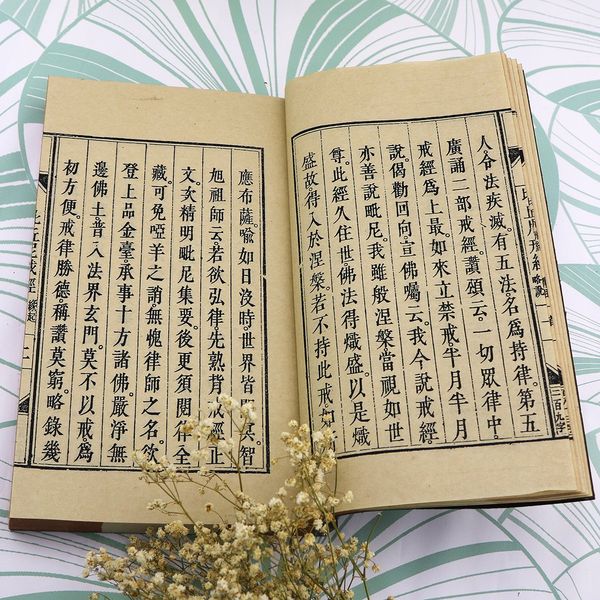 人。令法疾滅。有五法名爲持律。第五
廣誦二部戒經。讚頌云。一切眾律中。
戒經爲上最。如來立禁戒。半月半月
說。偈勸回向。宣佛囑云。我今說戒經。
亦善說毗尼。我雖般涅槃。當視如世
尊。此經久住世。佛法得熾盛。以是熾
盛故。得入於涅槃。若不持此戒。如
應布薩。喻如日沒時。世界皆冥。智
旭祖師云。若欲弘律。先熟背戒經。止
文。次精明毗尼集要。後更須閱律全
藏。可免啞羊之誚。無愧律師之名。欲
登上品金臺。承事十方諸佛。嚴淨無
邊佛土。普入法界玄門。莫不以戒爲
初方便。戒律勝德。稱讚莫窮。略錄幾
戒經 緣起